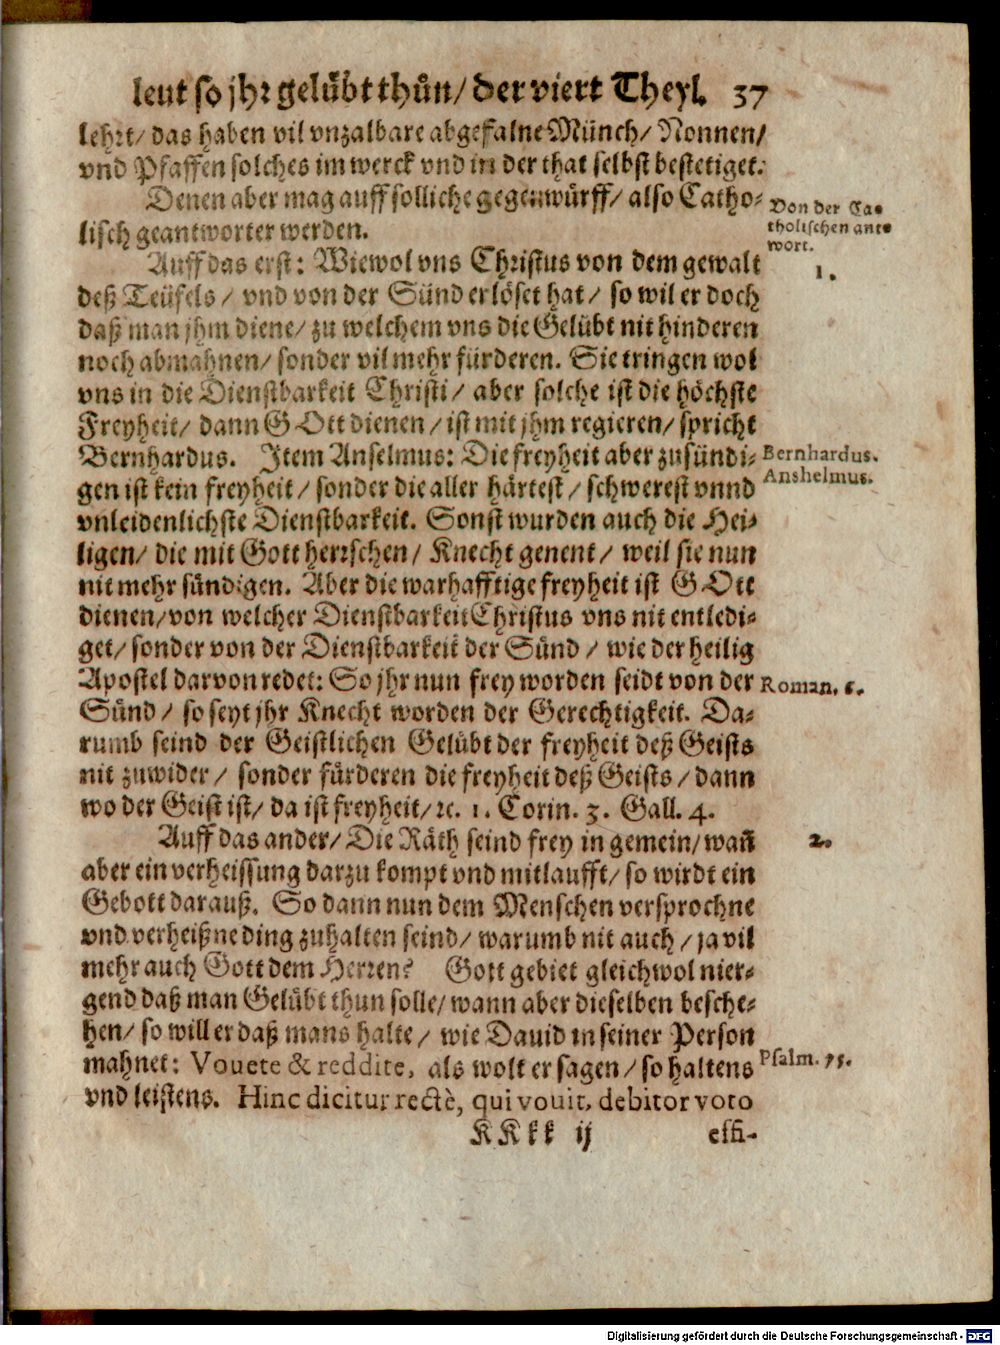 leut so jhr gelübt thůn/ der viert Theyl. 37
lehrt/ das haben vil vnzalbare abgefalne Münch/ Nonnen/
vnd Pfaffen solches im werck vnd in der that selbst bestetiget.
Denen aber mag auff solliche gegenwürff/ also Catho-
lisch geantwortet werden.
Von der Ca-
tholischen ant-
wort.
Auff das erst: Wiewol vns Christus von dem gewalt
1.
deß Teüfels/ vnd von der Sünd erlöset hat/ so wil er doch
daß man jhm diene/ zu welchem vns die Gelübt nit hinderen
noch abmahnen/ sonder vil mehr fürderen. Sie tringen wol
vns in die Dienstbarkeit Christi/ aber solche ist die höchste
Freyheit/ dann GOtt dienen/ ist mit jhm regieren/ spricht
Bernhardus. Item Anselmus: Die freyheit aber zusündi-
Bernhardus.
Anshelmus.
gen ist kein freyheit/ sonder die aller härtest/ schwerest vnnd
vnleidenlichste Dienstbarkeit. Sonst wurden auch die Hei-
ligen/ die mit Gott herrschen/ Knecht genent/ weil sie nun
nit mehr sündigen. Aber die warhafftige freyheit ist GOtt
dienen/ von welcher Dienstbarkeit Christus vns nit entledi-
get/ sonder von der Dienstbarkeit der Sünd/ wie der heilig
Apostel darvon redet: So jhr nun frey worden seidt von der
Roman. 6.
Sünd/ so seyt jhr Knecht worden der Gerechtigkeit. Da-
rumb seind der Geistlichen Gelübt der freyheit deß Geists
nit zuwider/ sonder fürderen die freyheit deß Geists/ dann
wo der Geist ist/ da ist freyheit/ ꝛc. 1. Corin. 3. Gall. 4.
Auff das ander/ Die Räth seind frey in gemein/ wañ
2.
aber ein verheissung darzu kompt vnd mitlaufft/ so wirdt ein
Gebott darauß. So dann nun dem Menschen versprochne
vnd verheißne ding zuhalten seind/ warumb nit auch/ ja vil
mehr auch Gott dem Herren? Gott gebiet gleichwol nier-
gend daß man Gelübt thun solle/ wann aber dieselben besche-
hen/ so will er daß mans halte/ wie Dauid in seiner Person
mahnet: Vouete & reddite, als wolt er sagen/ so haltens
Psalm. 75.
vnd leistens. Hinc dicitur rectè, qui vouit, debitor voto
KKkk ij
effi-
Digitalisierung gefördert durch die Deutsche Forschungsgemeinschaft - DFG